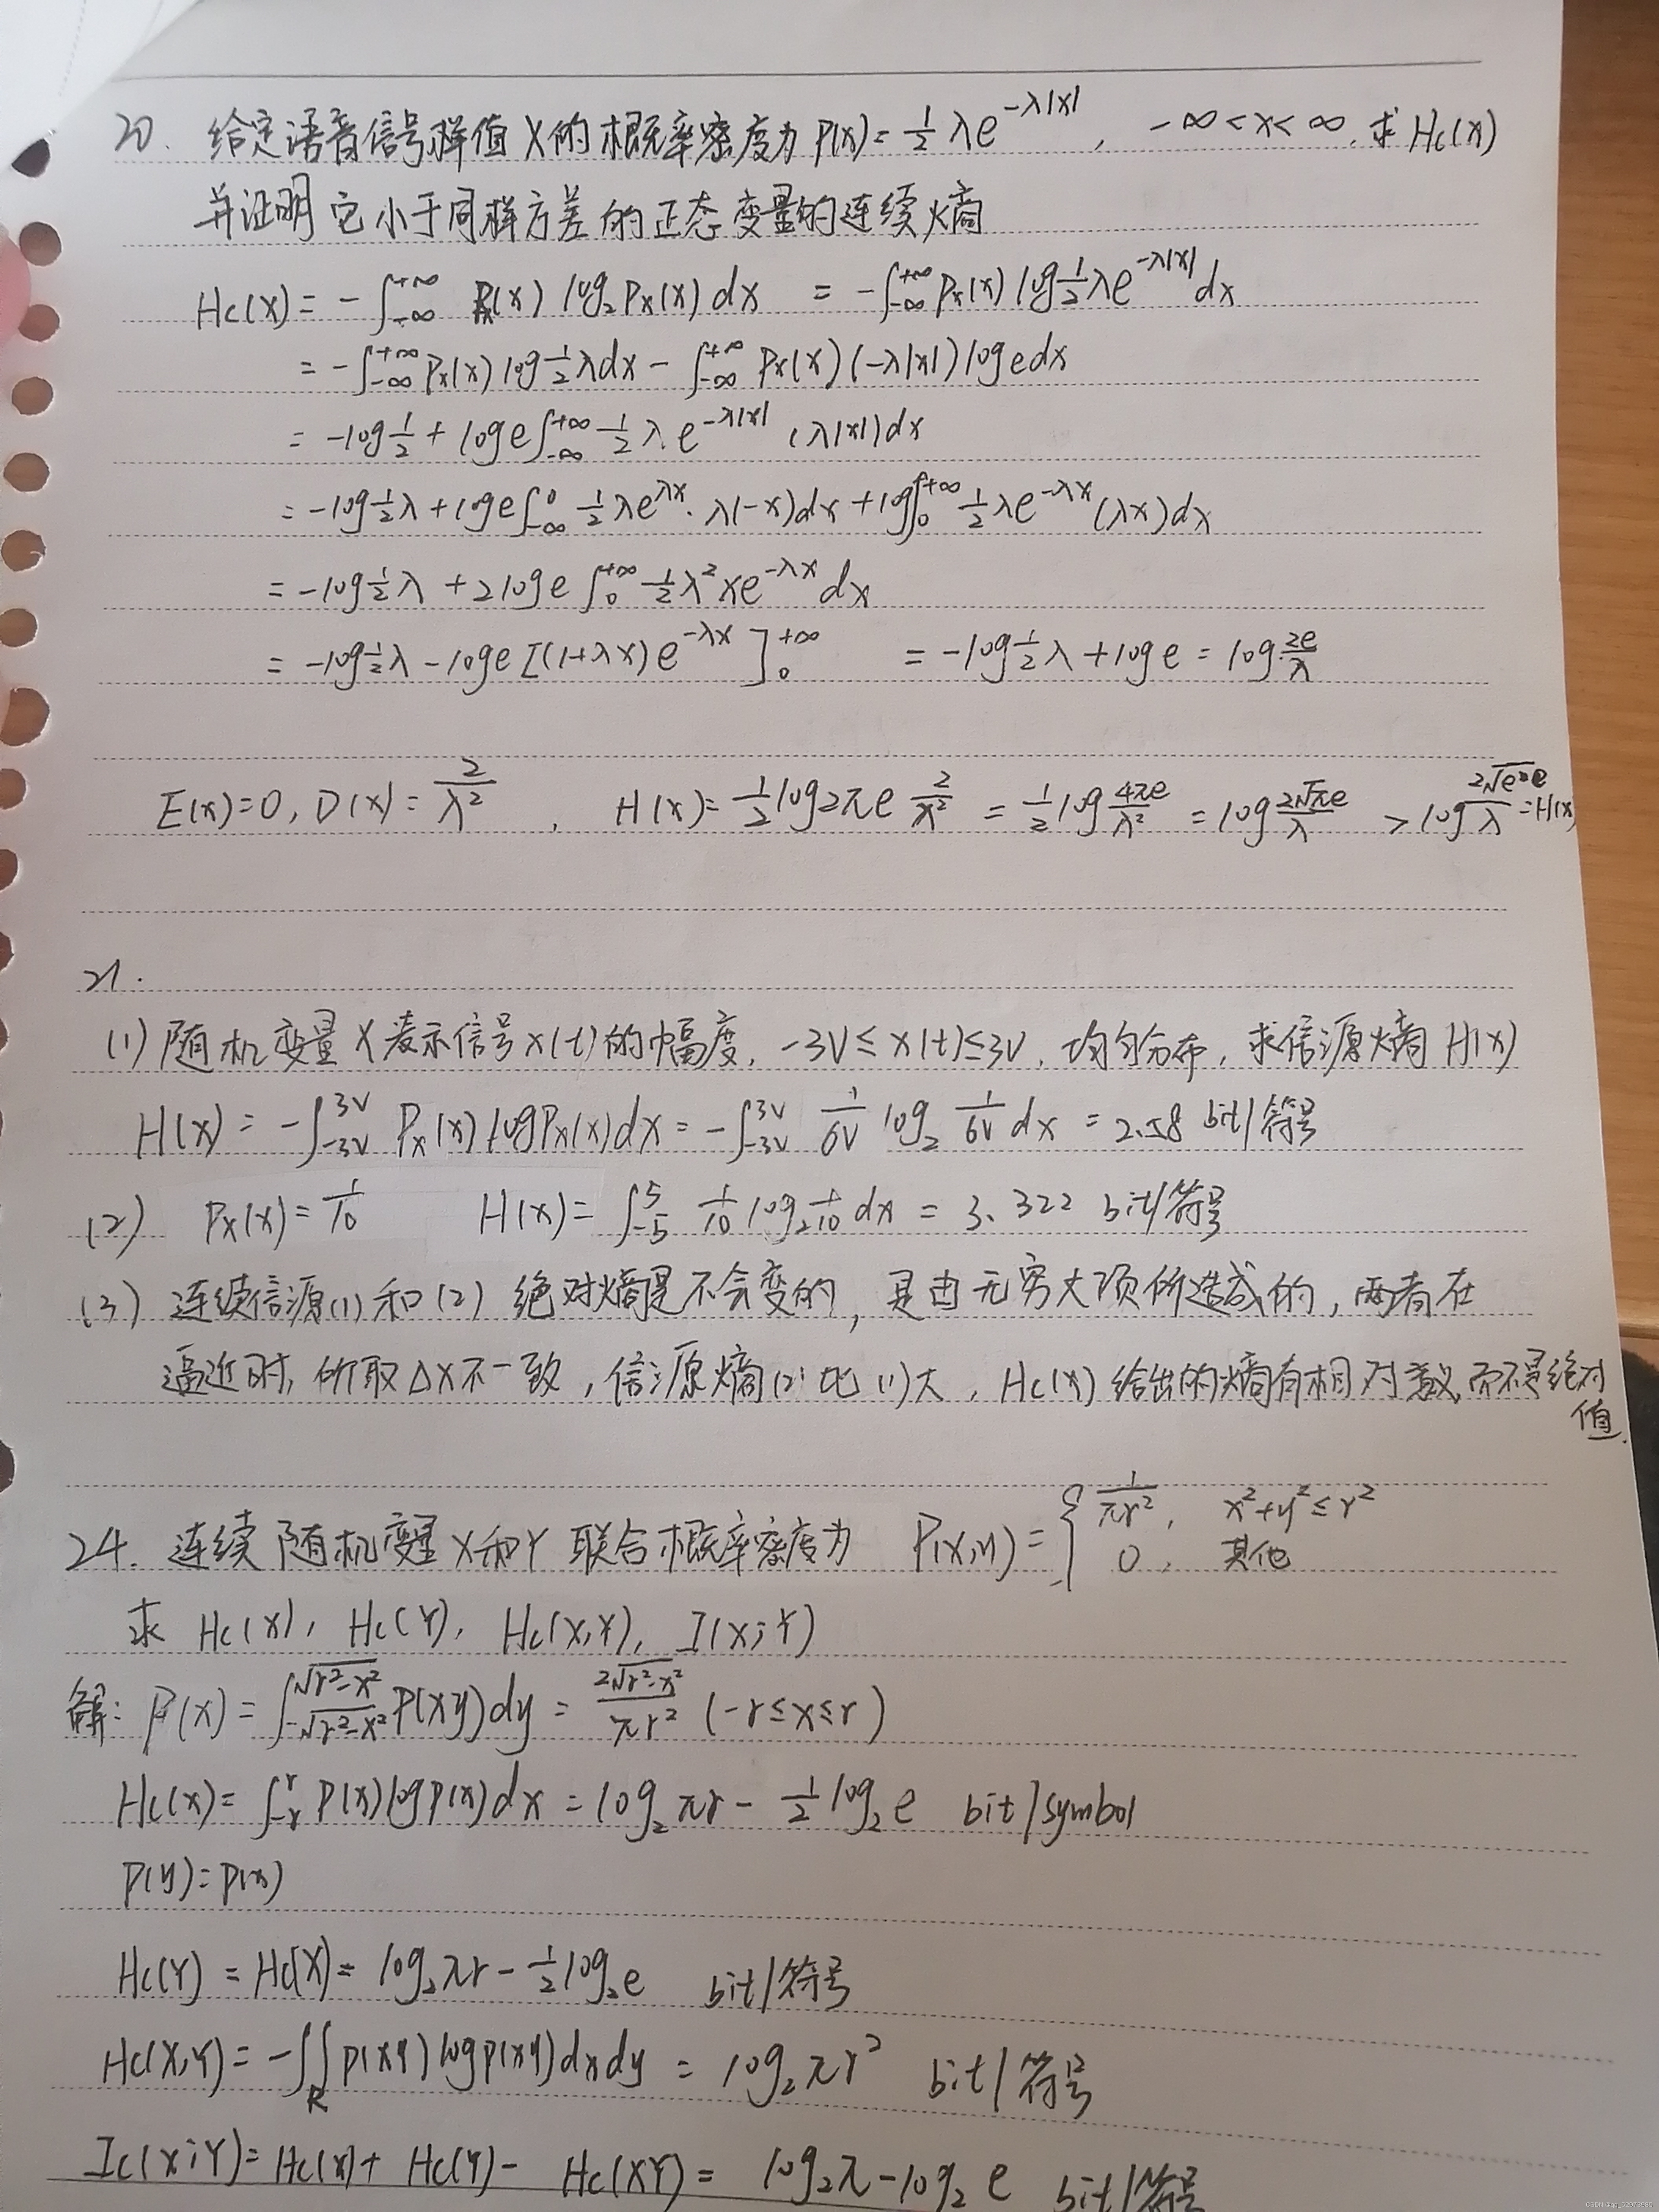 20. 给定语音信号样值X的概率密度为 P(x)=½λe^{-λ|x|}, -∞<x<∞, 求Hc(x)
并证明它小于同样方差的正态变量的连续熵
Hc(X)= -∫_{-∞}^{+∞} Px(x) log₂Px(x) dx = -∫_{-∞}^{+∞} Px(x) log½λe^{-λ|x|} dx
= -∫_{-∞}^{+∞} Px(x) log½λdx - ∫_{-∞}^{+∞} Px(x) (-λ|x|) log e dx
= -log½ + log e∫_{-∞}^{+∞} ½λ e^{-λ|x|} (λ|x|)dx
= -log½λ + log e∫_{-∞}^{0} ½λe^{λx}·λ(-x)dx + log∫_{0}^{+∞} ½λe^{-λx}(λx)dx
= -log½λ + 2log e ∫_{0}^{+∞} ½λ²xe^{-λx}dx
= -log½λ - log e [(1+λx)e^{-λx}]_{0}^{+∞} = -log½λ + log e = log 2e/λ
E(x)=0, D(x)= 2/λ², H(x)= ½log2πe 2/λ² = ½log 4πe/λ² = log 2√πe/λ > log 2√e·e/λ = H(x)
21.
(1) 随机变量X表示信号x(t)的幅度, -3V≤x(t)≤3V, 均匀分布, 求信源熵H(x)
H(x) = -∫_{-3V}^{3V} Px(x) logPx(x)dx = -∫_{-3V}^{3V} 1/6V log₂ 1/6V dx = 2.58 bit/符号
(2) Px(x)= 1/10 H(x)= ∫_{-5}^{5} 1/10 log₂ 1/10 dx = 3.322 bit/符号
(3) 连续信源(1)和(2) 绝对熵是不会变的, 是由无穷大项所造成的, 两者在
逼近时, 所取Δx不一致, 信源熵(2)比(1)大, Hc(x)给出的熵有相对意义, 而不是绝对
值.
24. 连续随机变量X和Y联合概率密度为 P(x,y)= { 1/πr², x²+y²≤r²
0, 其他
求 Hc(X), Hc(Y), Hc(X,Y), I(X;Y)
解: P(x) = ∫_{-√r²-x²}^{√r²-x²} P(xy)dy = 2√r²-x²/πr² (-r≤x≤r)
Hc(x)= ∫_{-r}^{r} P(x)logP(x)dx = log₂πr - ½log₂e bit/symbol
P(y)=P(x)
Hc(Y) = Hc(X)= log₂πr - ½log₂e bit/符号
Hc(X,Y)= -∬_R p(xy) logp(xy)dxdy = log₂πr² bit/符号
Ic(X;Y)= Hc(x)+ Hc(Y)- Hc(XY) = log₂π - log₂ e bit/符号